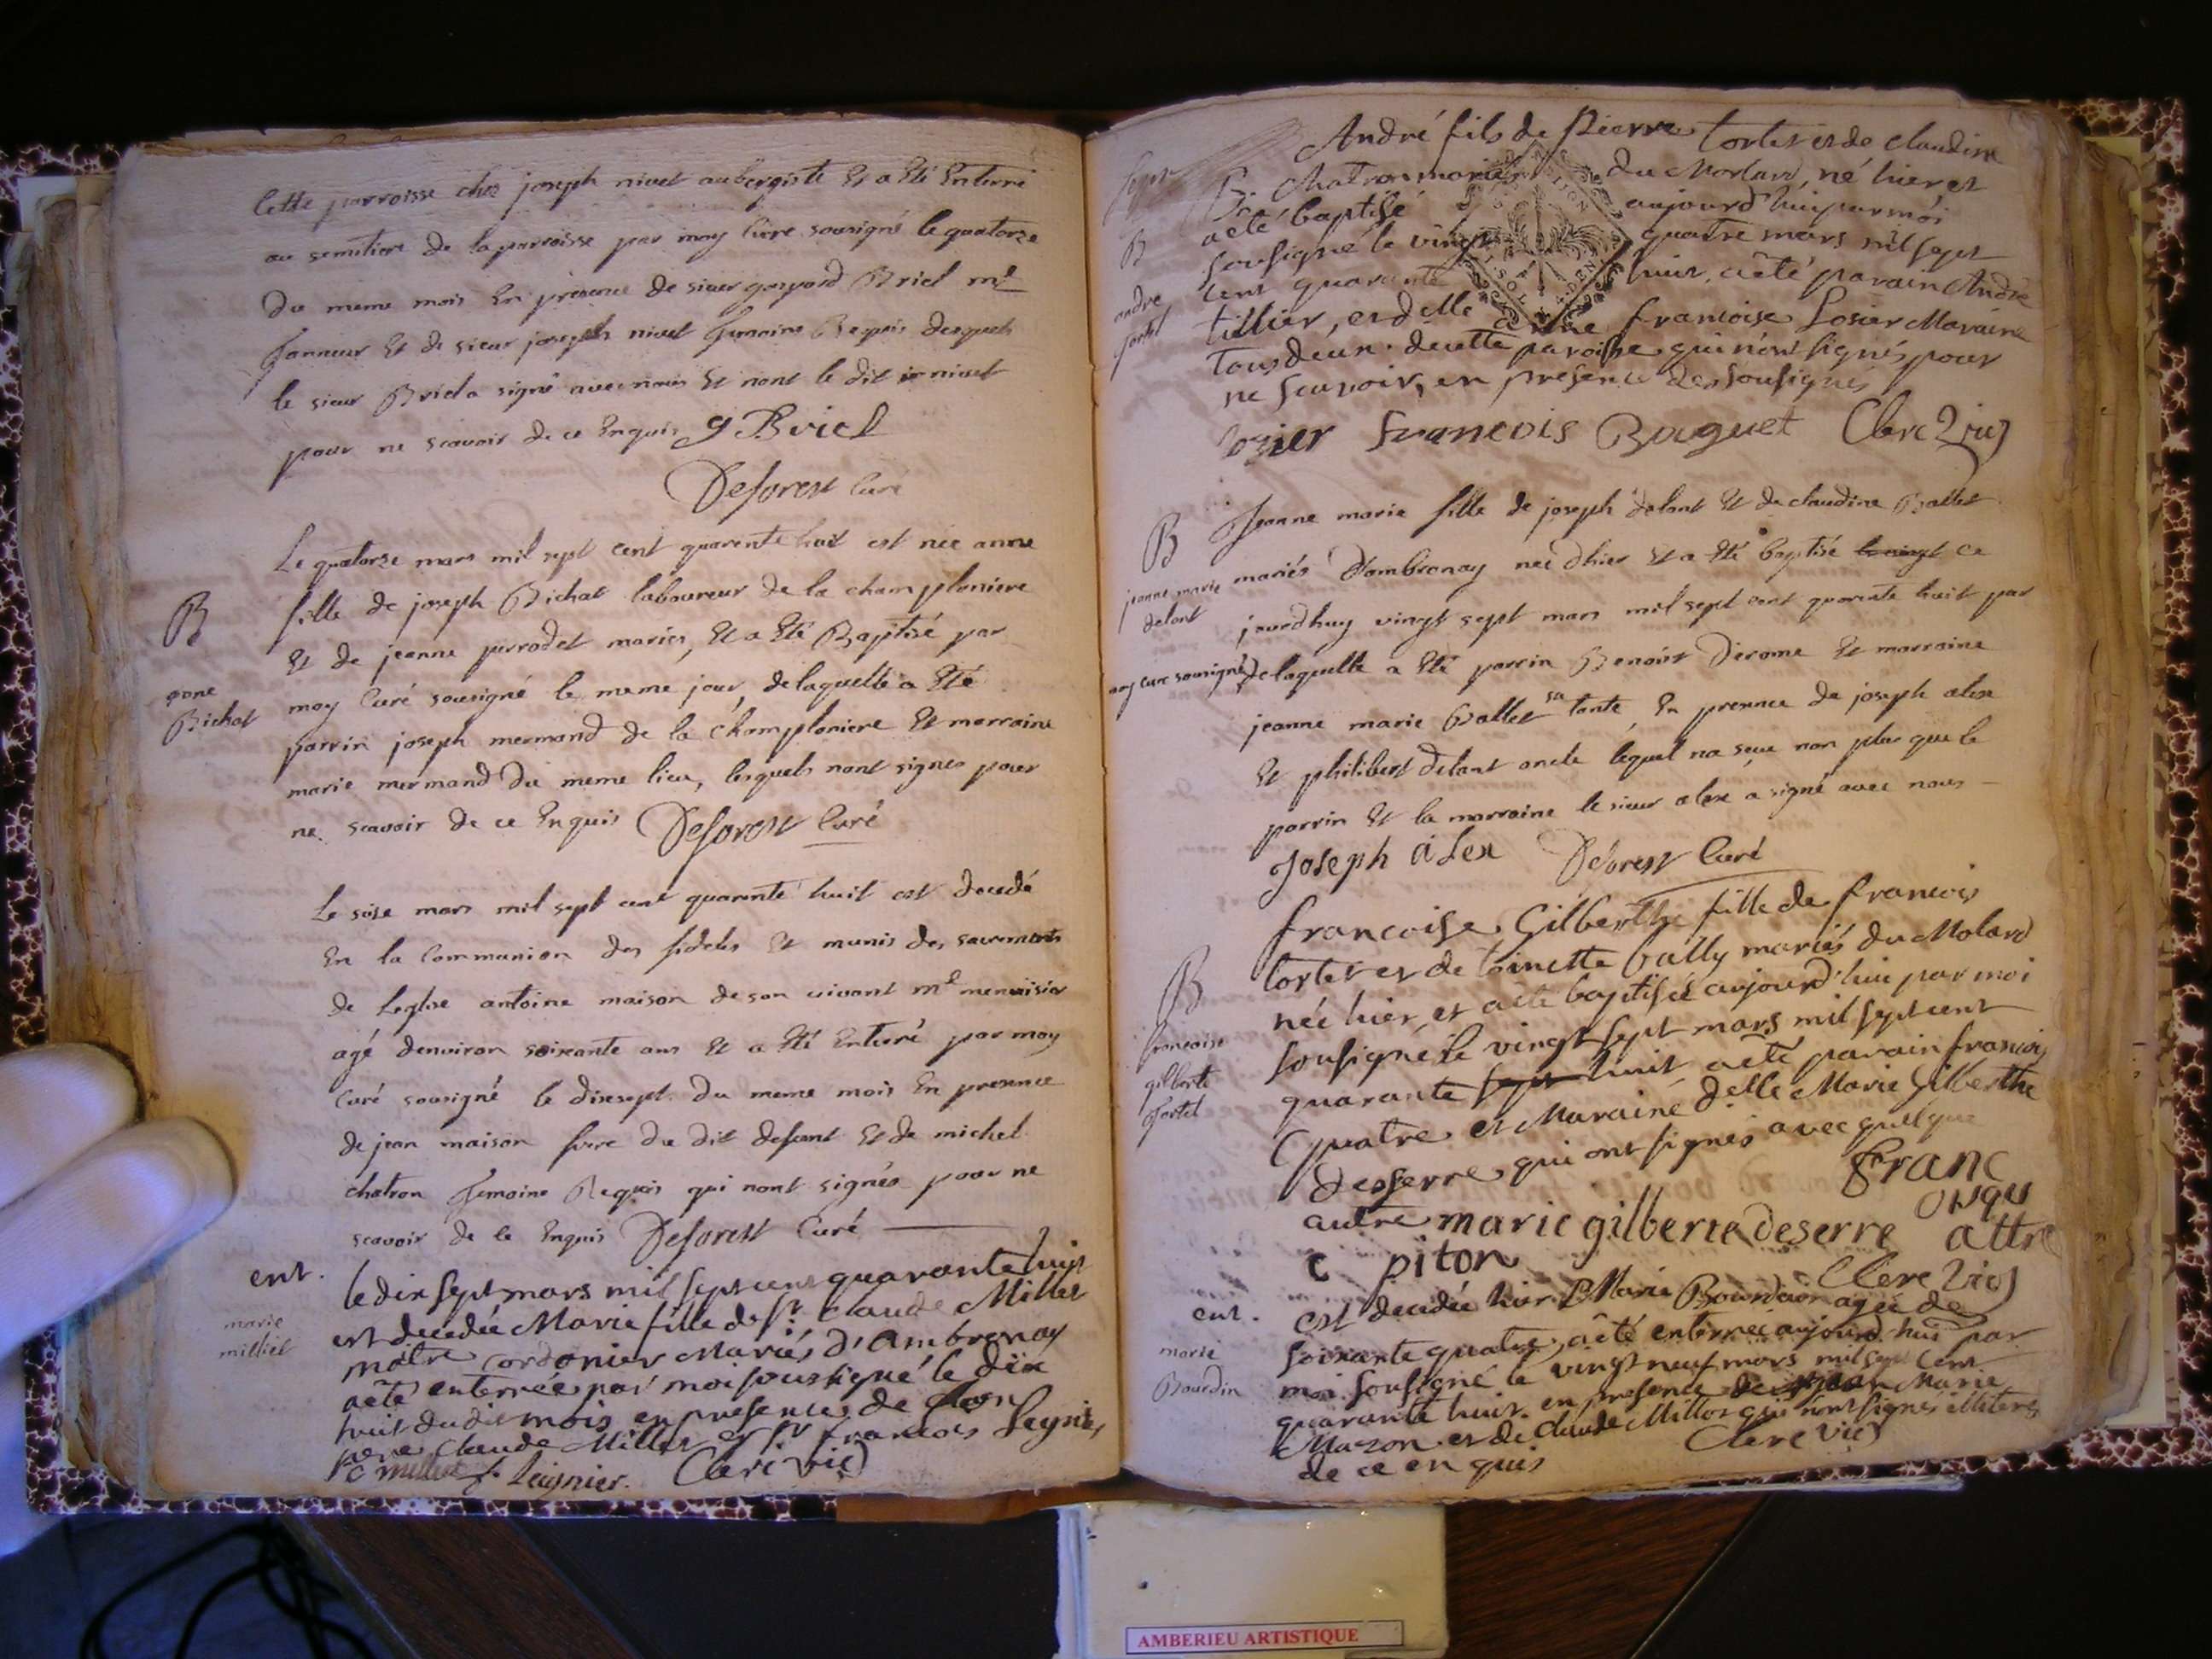 Cette parroisse chés joseph nivet aubergiste Et a Eté Enterré
au semitiere de la parroisse par moy Curé sousigné le quatorze
du meme mois En presence de sieur gaspard Briel me
Tanneur Et de sieur joseph nivet Temoins Requis desquels
le sieur Briel a signé avec nous Et nont le dit nivet
pour ne scavoir de ce Enquis g Briel
Deforest Curé
Le quatorze mars mil sept cent quarente huit est née anne
fille de joseph Bichat laboureur de la champloniere
Et de jeanne perrodet mariés, Et a Eté Baptisé par
moy Curé sousigné le meme jour, de laquelle a Eté
parrin joseph mermand de la Champloniere Et marraine
marie mermand du meme lieu, lesquels nont signés pour
ne scavoir de ce Enquis Deforest Curé
B
anne
Bichat
Le sise mars mil sept cent quarante huit est decedé
En la Communion des fideles Et munis des sacrements
de Leglise antoine maison de son vivant me menuisier
agé denviron soixante ans Et a Eté Enterré par moy
Curé sousigné le dixsept du meme mois En presence
de jean maison frere du dit defunt Et de michel
chatron Temoins Requis qui nont signés pour ne
scavoir de ce Enquis Deforest Curé
ent.
marie
milliet
le dix sept mars mil sept cent quarante huit
est decedée Marie fille de Sr. Claude Millet
maitre cordonier Mariés d'Ambronay
a êté enterrée par moi soussigné le dix
huit du dit mois en presences de son
pere Claude Millet et Sr francois Leynier
C millet f. Leignier. Clerc vic
André fils de Pierre Tortet et de Claudine
Chatron mariés du Morlard, né hier et
a êté baptisé aujourd'hui par moi
sousigné le vingt quatre mars mil sept
cent quarante huit, a êté parain André
tillier, et delle francoise Losier Maraine
tous deux de cette paroisse qui n'ont signés pour
ne scavoir, en presence des sousignés
lozier francois Baguet Clerc Vic
B
andre
Tortet
B
jeanne marie
delant
Jeanne marie fille de joseph delant Et de claudine Ballet
mariés d'ambronay neé dhier Et a Eté baptisé le vingt ce
jourdhuy vingt sept mars mil sept cent quarente huit par
moy curé sousigné de laquelle a Eté parrin Benoist Derome Et marraine
jeanne marie Ballet sa tante, En presence de joseph alex
Et philibert delant oncle lequel na sçeu non plus que le
parrin Et la marraine le sieur alex a signé avec nous
Joseph alex Deforest Curé
B
francoise
gilberte
Tortet
francoise Gilberthe fille de francois
tortet et de toinette bally mariés du Molard
née hier, et a êté baptisée aujourd'hui par moi
sousigné le vingt sept mars mil sept cent
quarante sept huit a êté parain francois
Quatre et Maraine delle Marie Gilberthe
desserre qui ont signés avec quelque
autre marie gilberte deserre franc
oisqu
attre
C piton Clerc Vic
ent.
marie
Bourdin
est decedée hier Marie Bourdin agée de
soixante quatre, a êté enterrée aujourd'hui par
moi sousigné le vingt neuf mars mil sept cent
quarante huit en presence de Marie
Mazon et de Claude Millot qui n'ont signés illiterés
de ce enquis Clerc vic
AMBERIEU ARTISTIQUE